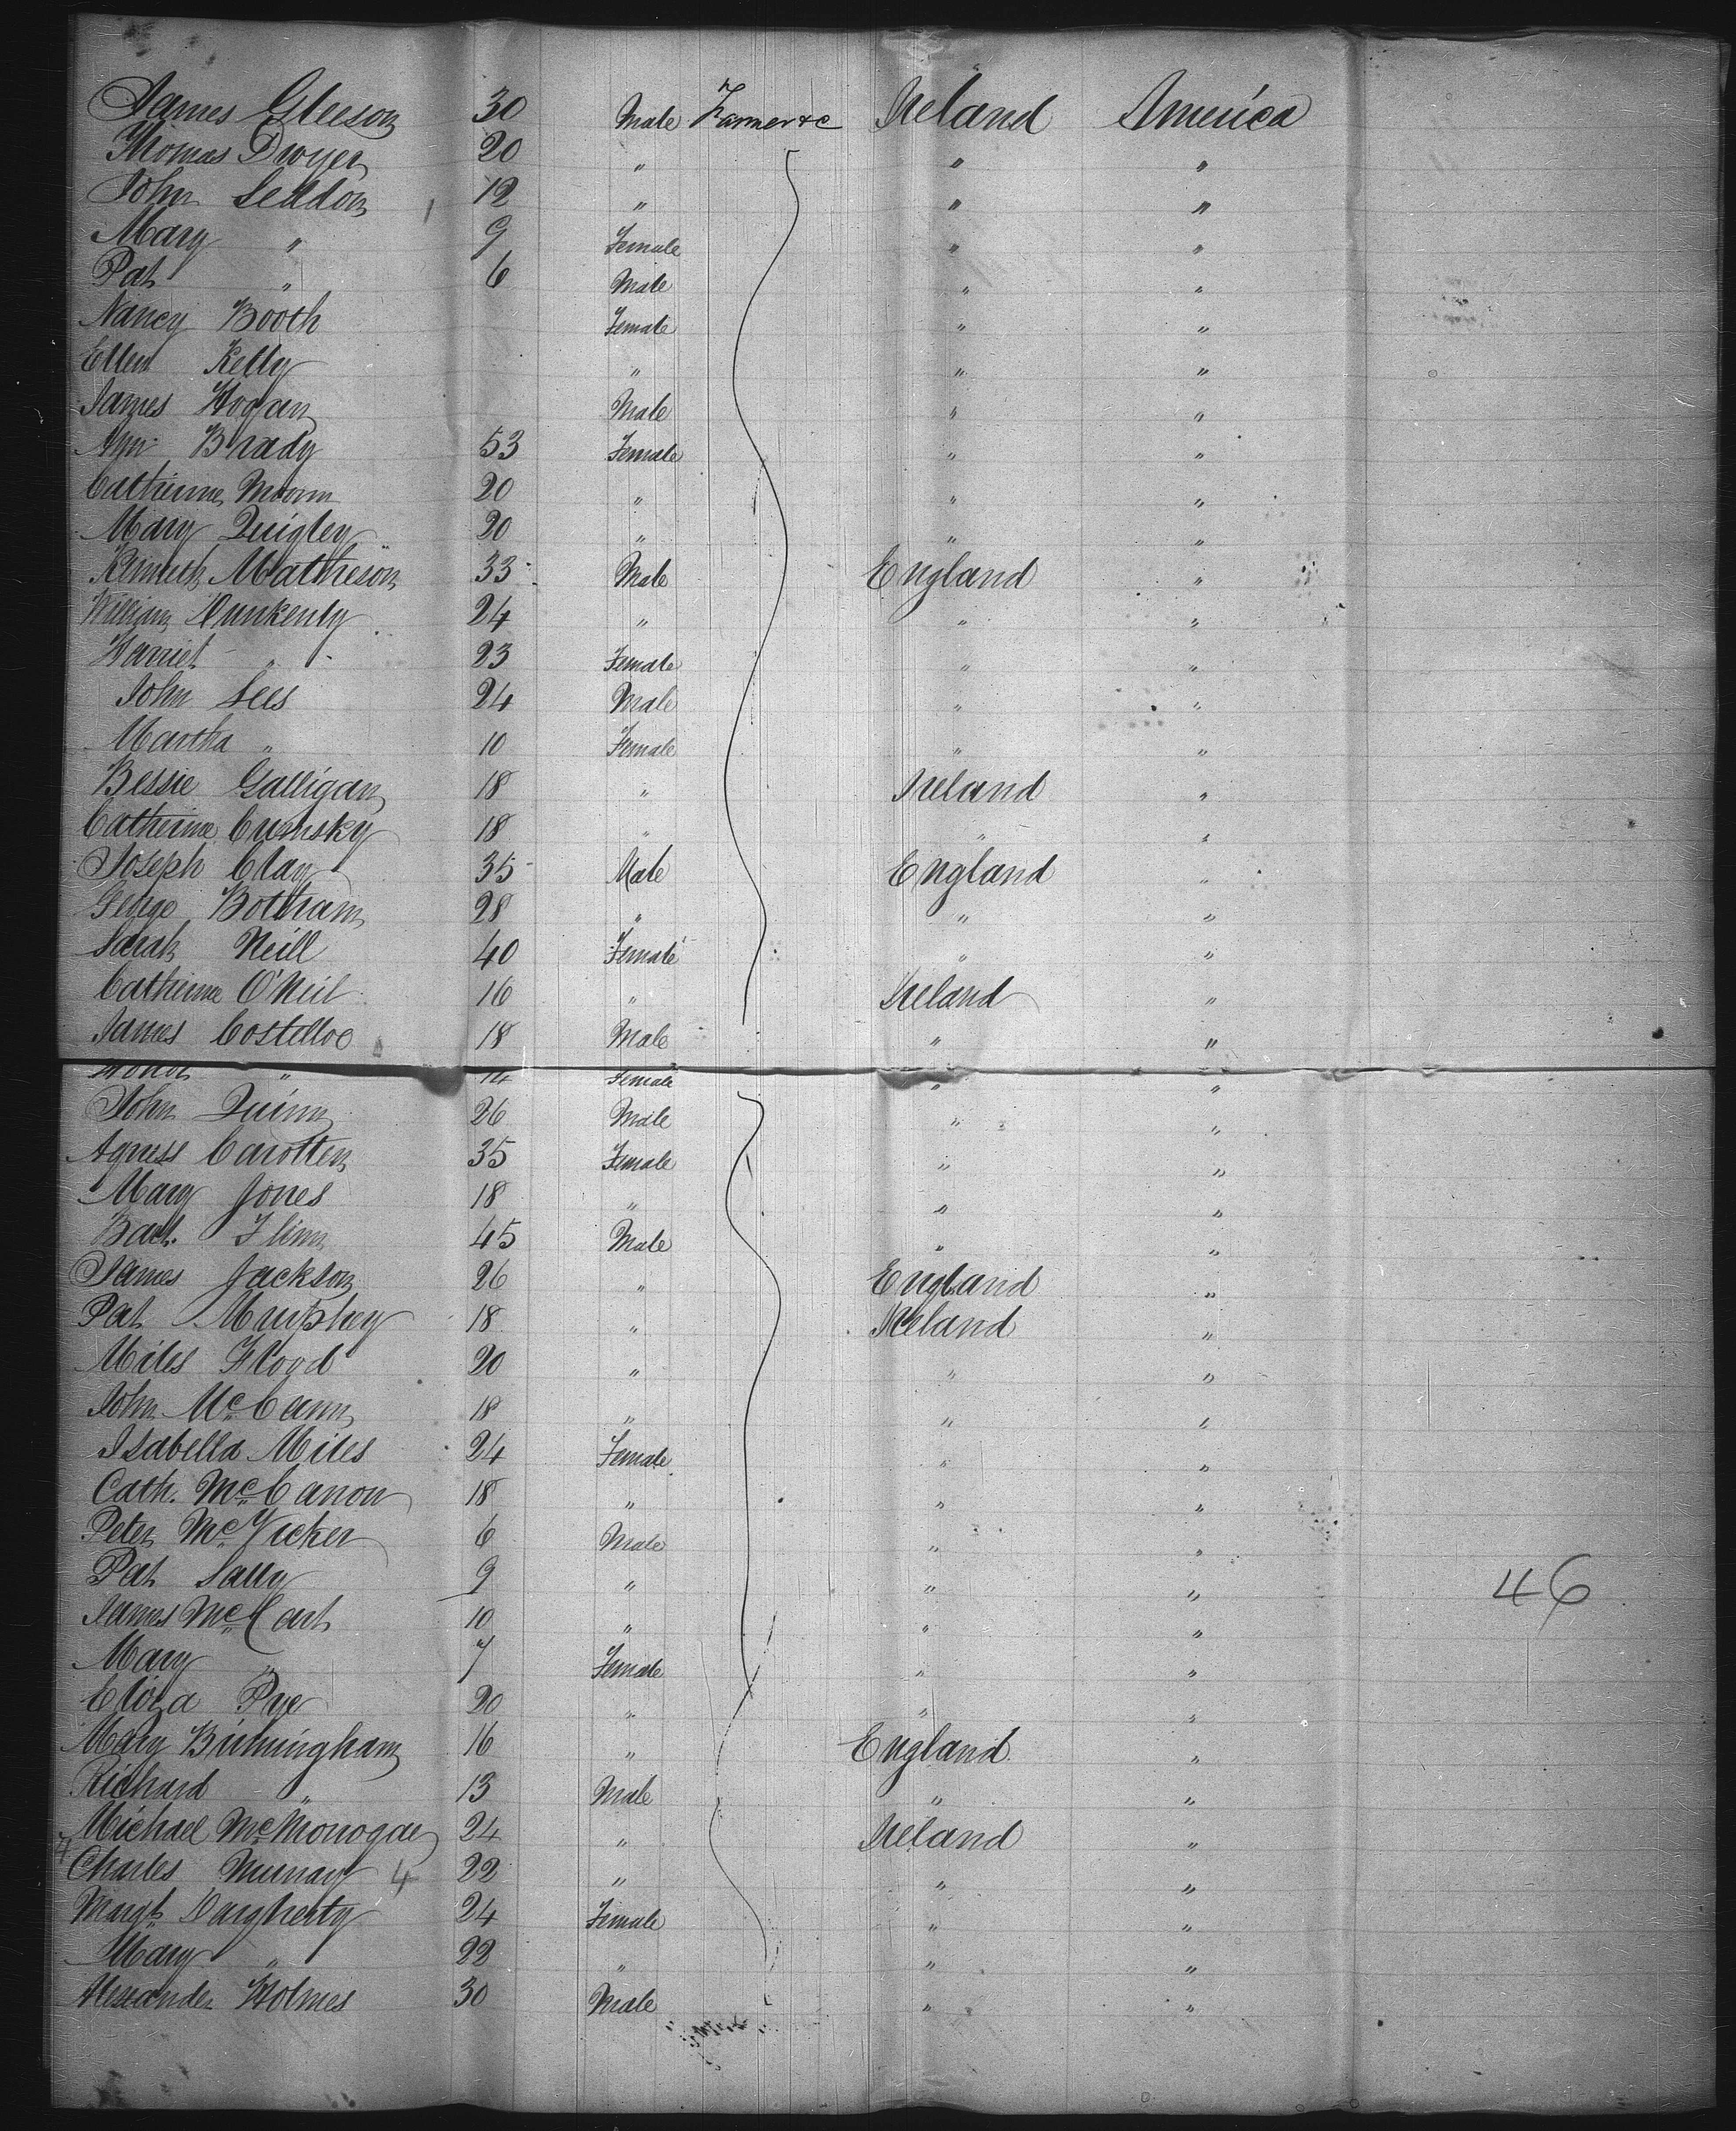 James Gleeson 30 Male Farmer &c Ireland America
Thomas Dwyer 20 " " "
John Seddon 12 " " "
Mary " 9 Female " "
Pat " 6 Male " "
Nancy Booth Female " "
Ellen Kelly " " "
James Hogan Male " "
Ann Brady 53 Female " "
Catherine 20 " " "
Mary Quigley 20 " " "
Kenneth Matheson 33 Male England "
William Dunkenly 24 " " "
Harriet " 23 Female " "
John Lees 24 Male " "
Martha " 10 Female " "
Bessie Galligan 18 " Ireland "
Catherine Cumsky 18 " " "
Joseph Clay 35 Male England "
George Botham 28 " " "
Sarah Neill 40 Female " "
Catherine O'Neil 16 " Ireland "
James Costelloe 18 Male " "
Honor " 14 Female " "
John Quinn 26 Male " "
Agness Carotten 35 Female " "
Mary Jones 18 " " "
Bart. Flinn 45 Male " "
James Jackson 26 " England "
Pat Murphey 18 " Ireland "
Miles Flood 20 " " "
John McCann 18 " " "
Isabella Miles 24 Female " "
Cath. McCanon 18 " " "
Peter McVicker 6 Male " "
Pat Lally 9 " " " 46
James McCart 10 " " "
Mary " 7 Female " "
Eliza Pye 20 " " "
Mary Birmingham 16 " England "
Richard " 13 Male " "
Michael McMonogae 24 " Ireland "
Charles Murray 4 22 " " "
Margt Daugherty 24 Female " "
Mary " 22 " " "
Alexander Holmes 30 Male " "